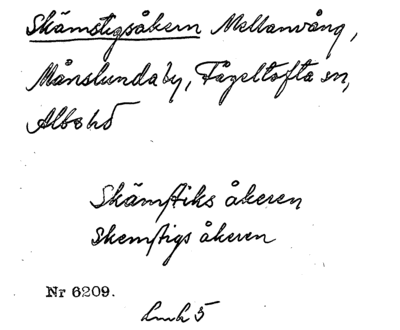 Skämstigsåkern Mellanvång,
Månslunda by, Fågeltofta sn,
Albo hd
Skämstiks åkeren
Skemstigs åkeren
Nr 6209.
Lmh 5